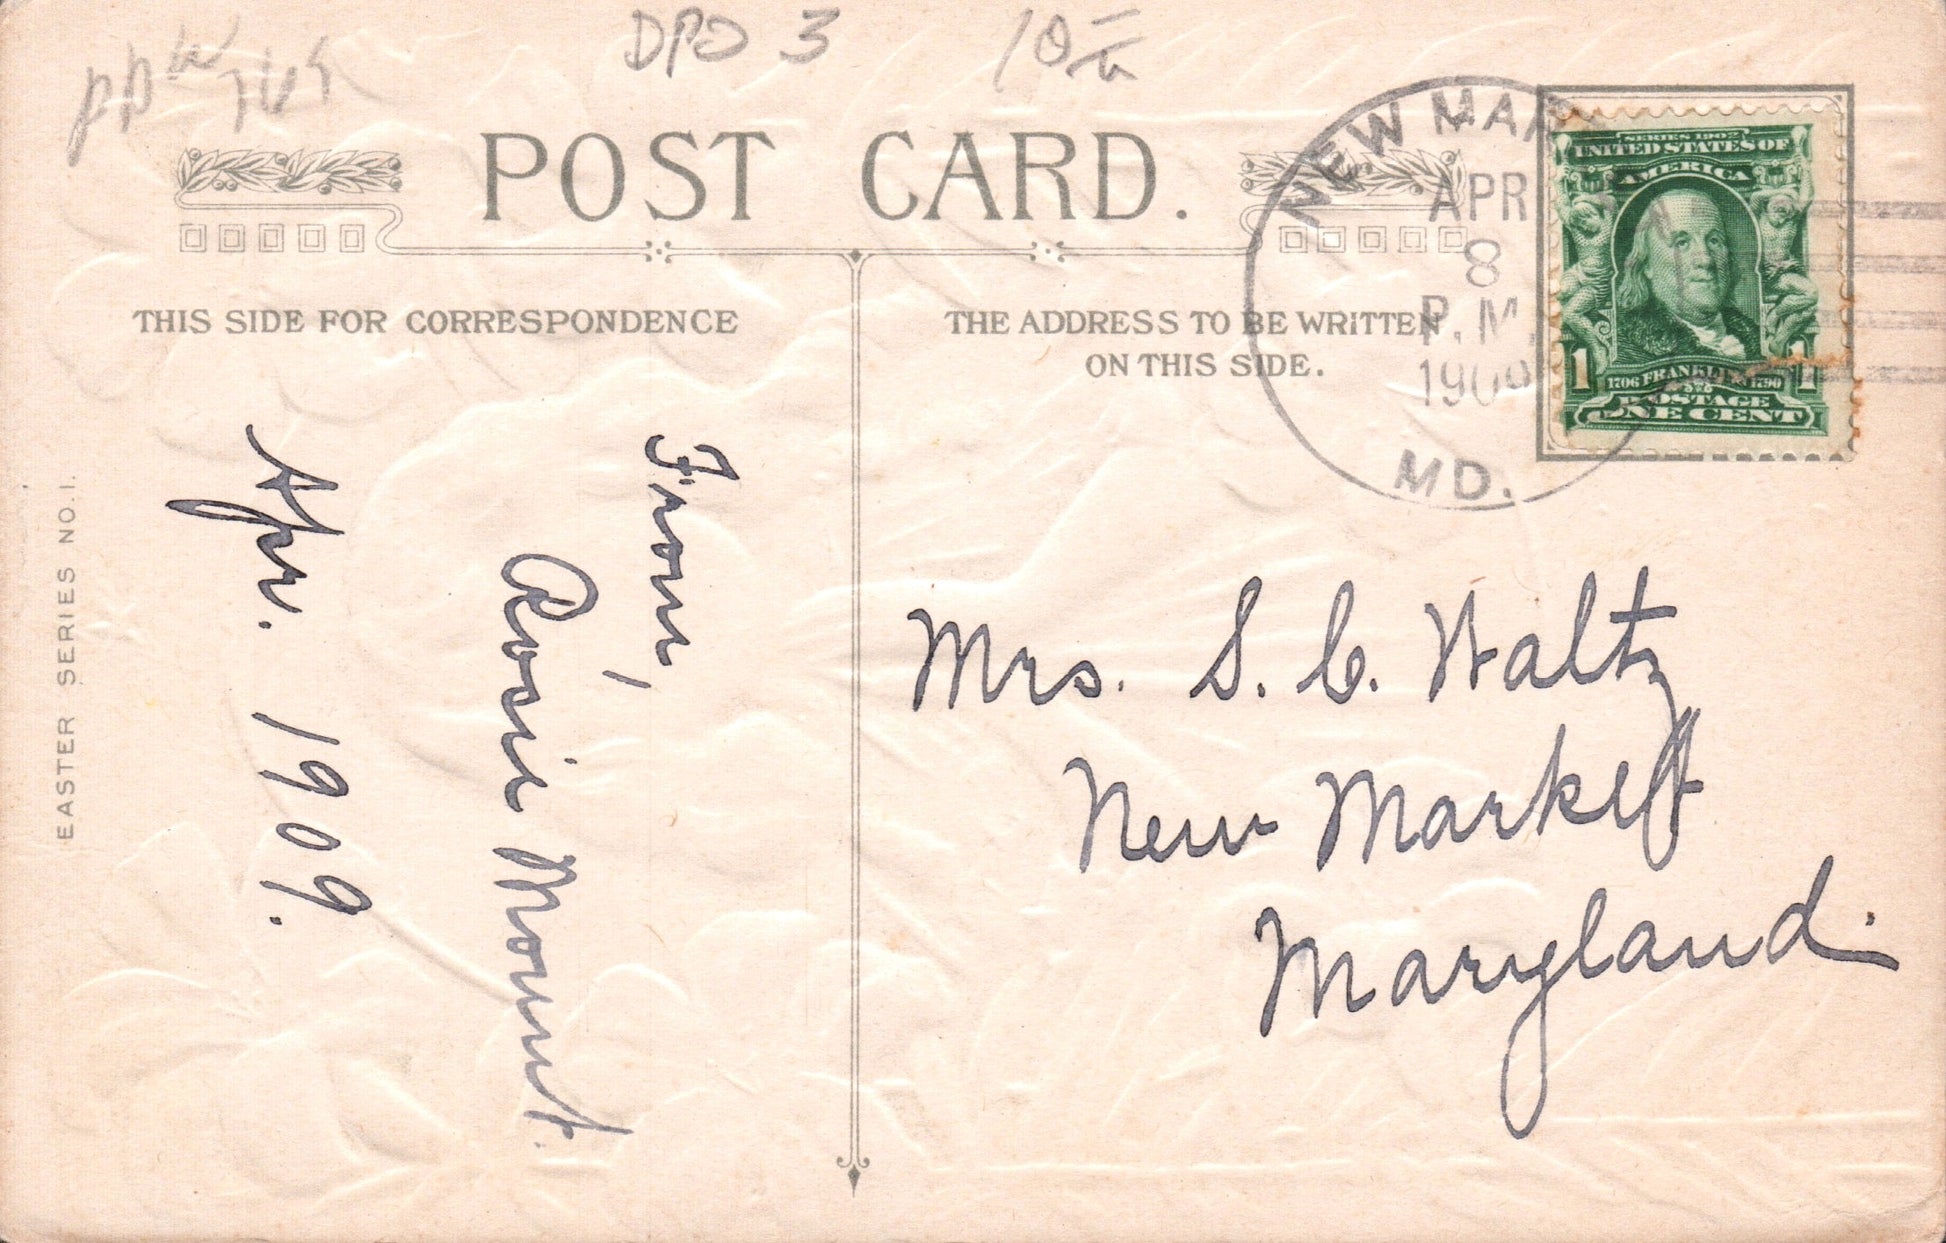 DPO 3
POST CARD.
THIS SIDE FOR CORRESPONDENCE
THE ADDRESS TO BE WRITTEN
ON THIS SIDE.
NEW MAR
APR
8
P.M.
190
MD.
SERIES 1902
UNITED STATES OF
AMERICA
1 1
1706 FRANKLIN 1790
POSTAGE
ONE CENT
From,
Rosie Mount.
Apr. 1909.
EASTER SERIES NO. 1.
Mrs. S. C. Waltz
New Market
Maryland.